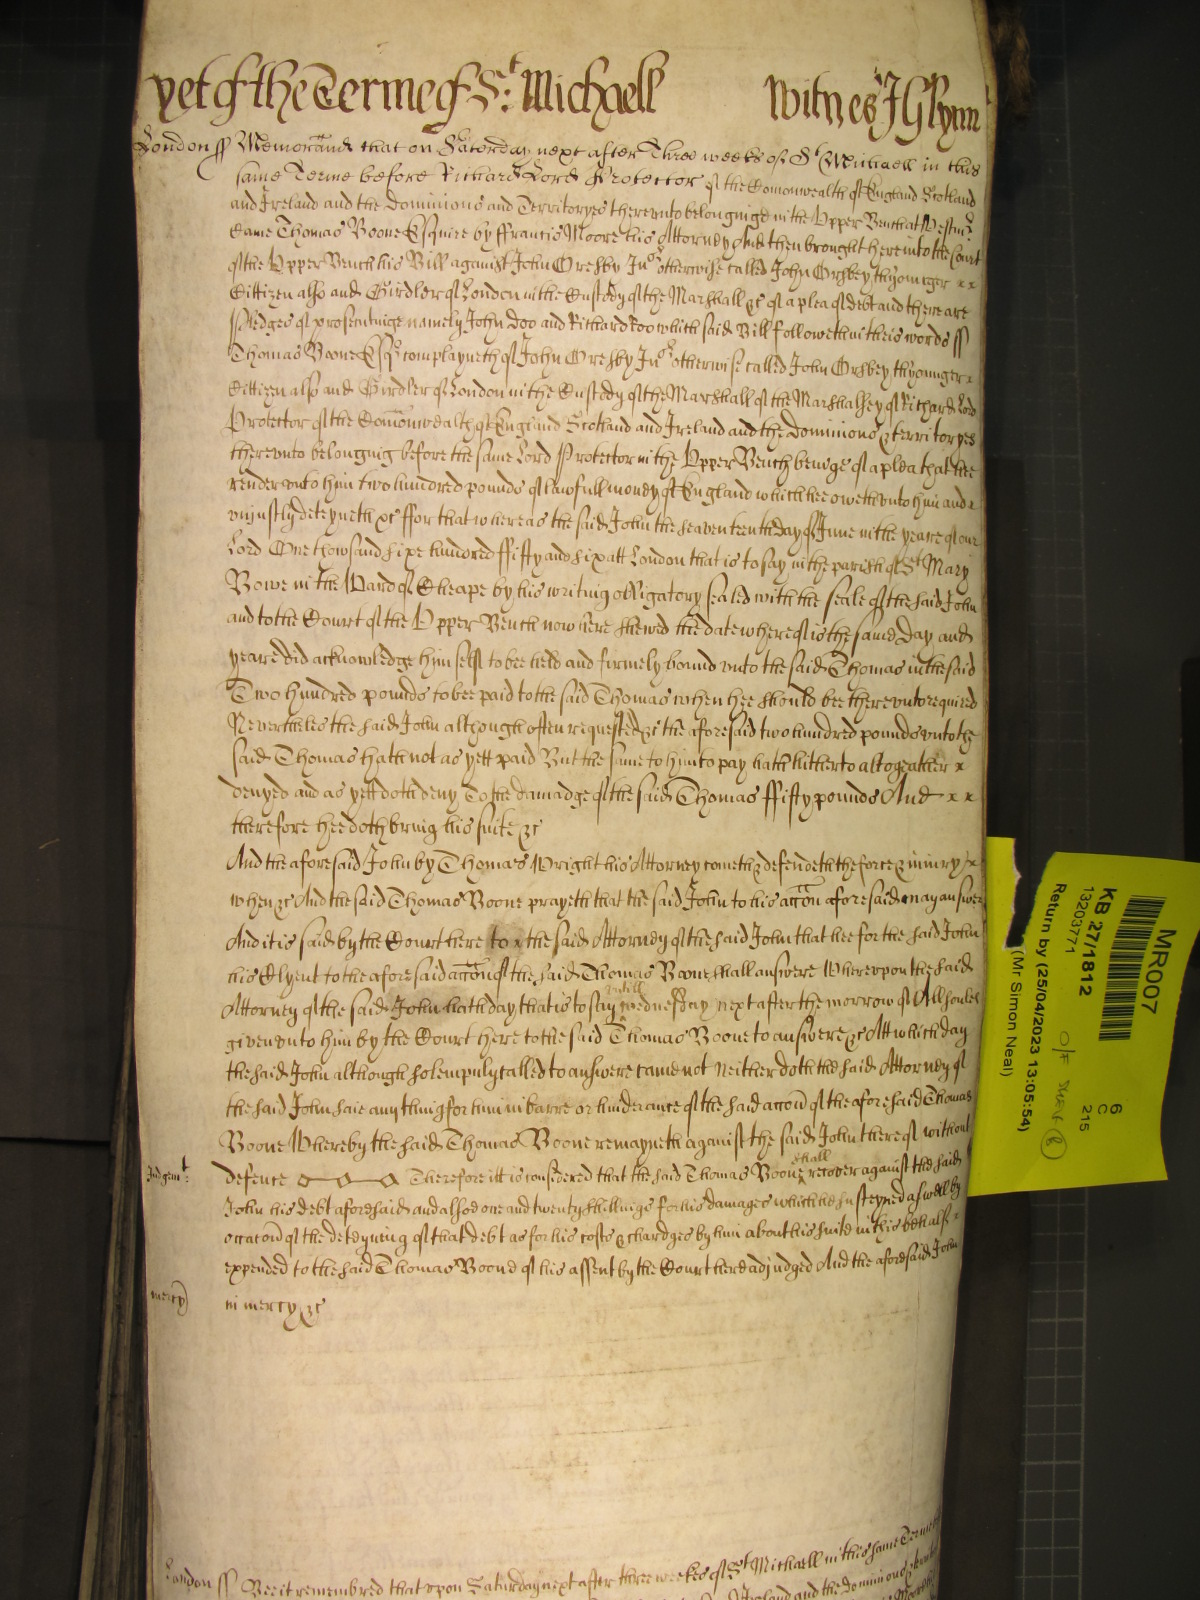 yet of the Terme of St: Michaell Witnes J Glynn
London ss Memorand that on Saturday next after Three weekes of St Michaell in this
same Terme before Richard Lord Protector of the Comonwealth of England Scotland
and Ireland and the Dominions and Territoryes thereunto belonginge in the Upper Bench att Westmr
Came Thomas Boone Esquire by ffrancis Moore his Attorney And then brought here into the Court
of the Upper Bench his Bill against John Oresby Junr otherwise called John Orsbey thyounger x x
Cittizen also and Girdler of London in the Custody of the Marshall &c of a plea of debt and there are
Pledges of prosecutinge namely John Doo and Richard Roo which said Bill followeth in theis words ss
Thomas Boone Esqr complayneth of John Oresby Junr otherwise called John Orsbey thyounger x
Cittizen also and Girdler of London in the Custody of the Marshall of the Marshalsey of Richard Lord
Protector of the Comonwealth of England Scotland and Ireland and the Dominions & territoryes
thereunto belonging before the same Lord Protector in the Upper Bench beinge of a plea that hee
render unto him two hundred pounds of lawfull money of England which hee oweth unto him and x
uniustly deteyneth &c ffor that whereas the said John the seaventeenth day of June in the yeare of our
Lord One thowsand sixe hundred ffifty and six att London that is to say in the parish of St Mary
Bowe in the Ward of Cheape by his writing obligatory sealed with the seale of the said John
and to the Court of the Upper Bench now here shewed the date whereof is the same day and
yeare did acknowledge himself to bee held and firmely bound unto the said Thomas in the said
Two hundred pounds to bee paid to the said Thomas when hee should bee thereunto required
Neverthelesse the said John although often requested &c the aforesaid two hundred pounds unto the
said Thomas hath not as yett paid But the same to him to pay hath hitherto altogeather x
denyed and as yett doth deny To the damadge of the said Thomas ffifty pounds And x x
therefore hee doth bring his suite &c
And the aforesaid John by Thomas Wright his Attorney cometh & defendeth the force & iniury x
when &c And the said Thomas Boone prayeth that the said John to his accon aforesaid may answer
And it is said by the Court here to x the said Attorney of the said John that hee for the said John
his Clyent to the aforesaid accon of the said Thomas Boone shall answere Whereupon the said
Attorney of the said John hath day that is to say untill wednesday next after the morrow of All soules
given unto him by the Court here to the said Thomas Boone to answere &c Att which day
the said John although solempnly called to answere came not Neither doth the said Attorney of
the said John saie any thing for him in barre or hinderance of the said accon of the aforesaid Thomas
Boone Whereby the said Thomas Boone remayneth against the said John thereof without
Judgemt: defence Therefore itt is considered that the said Thomas Boone shall recover against the said
John his debt aforesaid and alsoe one and twenty shillings for his damages which he susteyned aswell by
occacon of the deteyning of that debt as for his costs & chardges by him about his suite in this behalf x
expended to the said Thomas Boone of his assent by the Court here adjudged And the aforesaid John
mercy in mercy &c
London ss Bee it remembred that upon Saturday next after three weekes of St Michaell in this same Terme
Ireland and the dominions
MR007
KB 27/1812
13203771
6
C
215
Return by (25/04/2023 13:05:54)
(Mr Simon Neal)